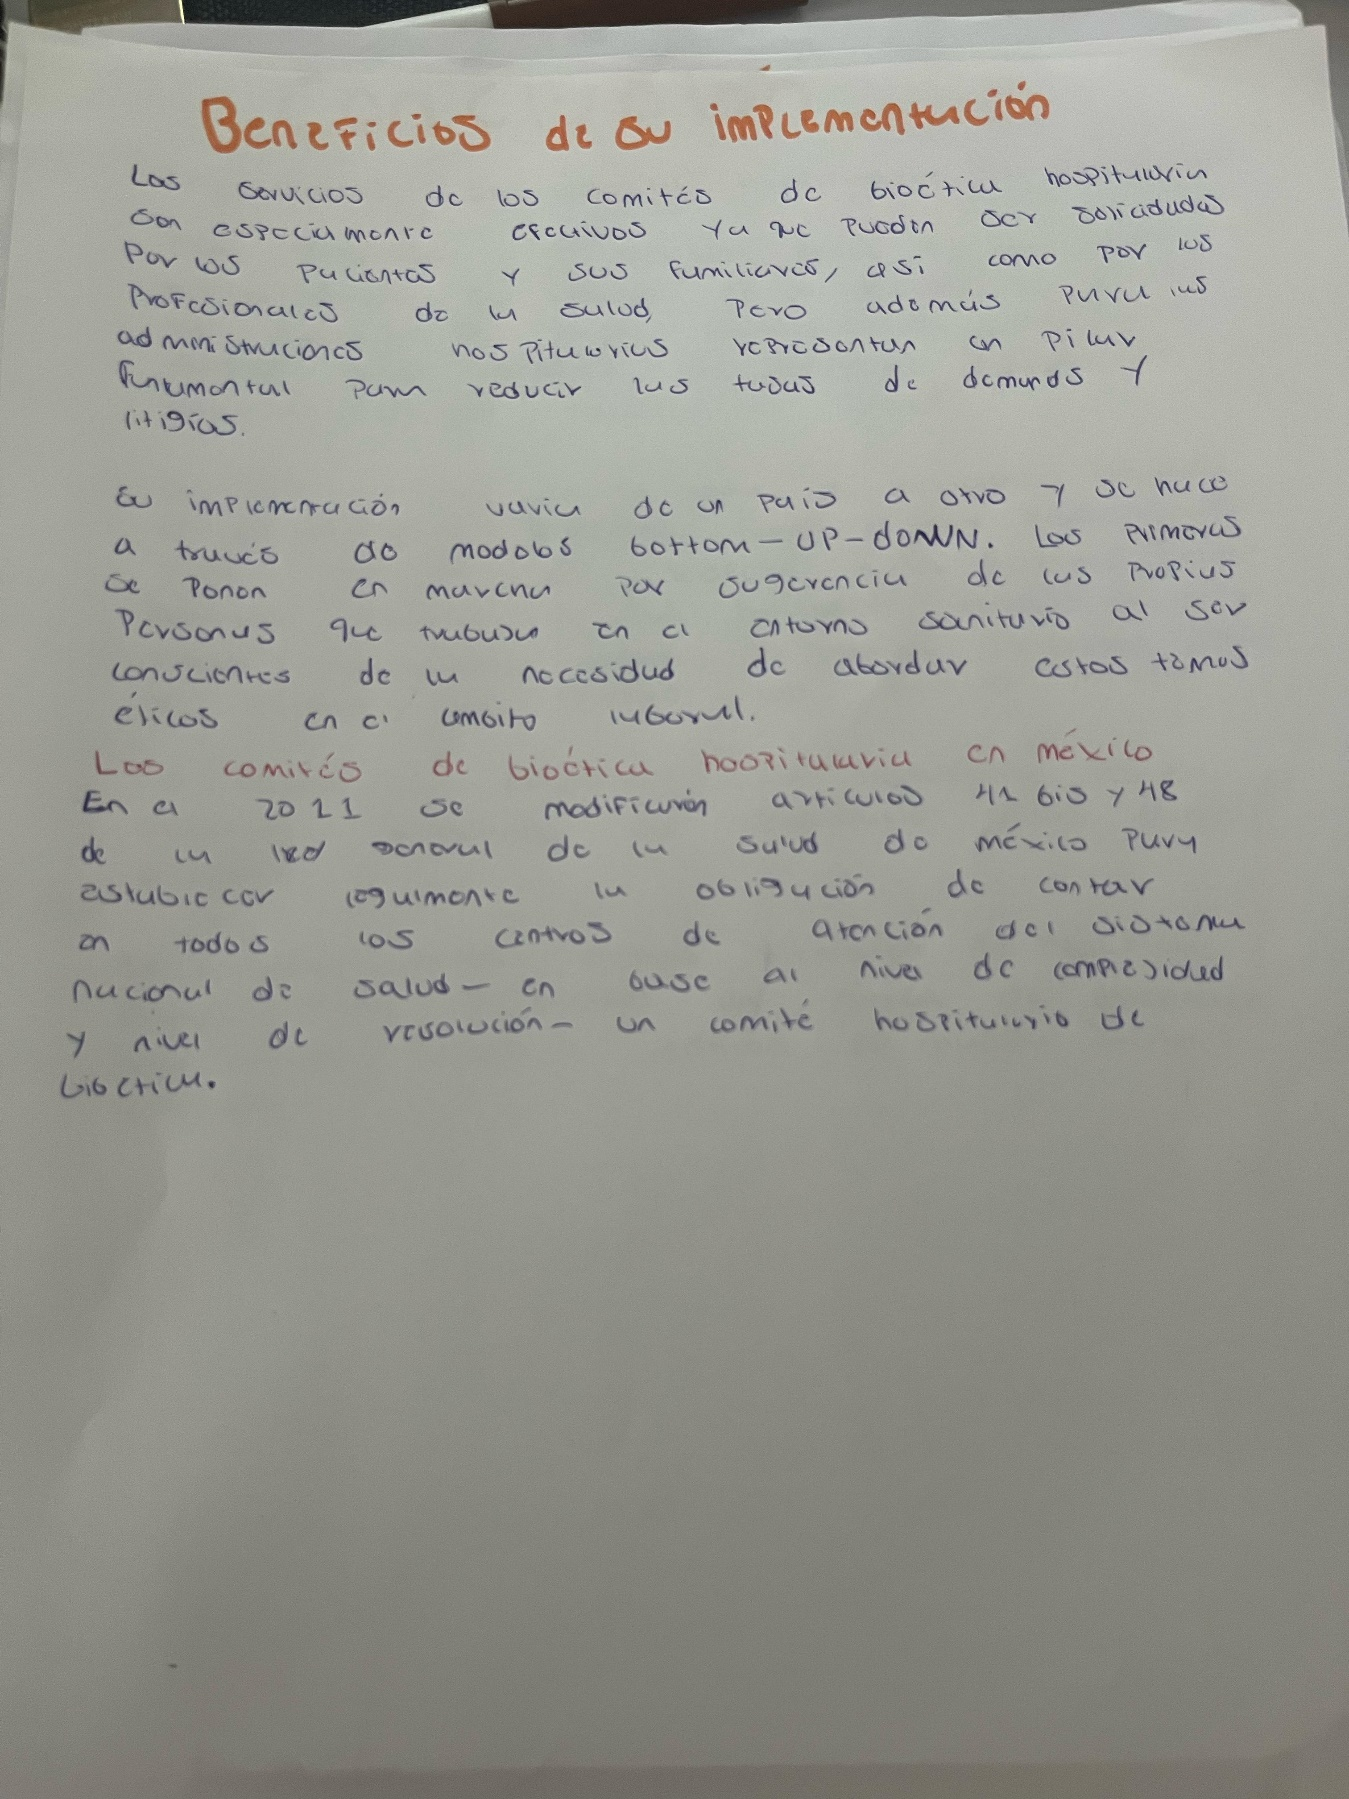 Beneficios de su implementación
Los servicios de los comités de bioética hospitalaria
son especialmente efectivos ya que pueden ser solicidadas
Por los pacientes y sus familiares, así como por los
Profesionales de la salud, Pero además para las
administraciones hospitalarias representan un pilar
funtamental para reducir las tasas de demands y
litigios.
Su implementación varia de un país a otro y se hace
a través de modolos bottom-UP-doWN. Los Primeras
se Ponen en marcha por sugerencia de las Propias
Personas que trabajan en el entorno sanitario al ser
conscientes de la necesidad de abordar estos temas
éticos en el ambito laboral.
Los comités de bioética hospitalaria en méxico
En el 2011 se modificarón artículos 41 bis y 48
de la ley general de la salud de méxico Para
establecer legalmente la obligación de contar
en todos los centros de atención del sistema
nacional de salud- en base al nivel de complejided
y nivel de resolución- un comité hospitalario de
bioética.